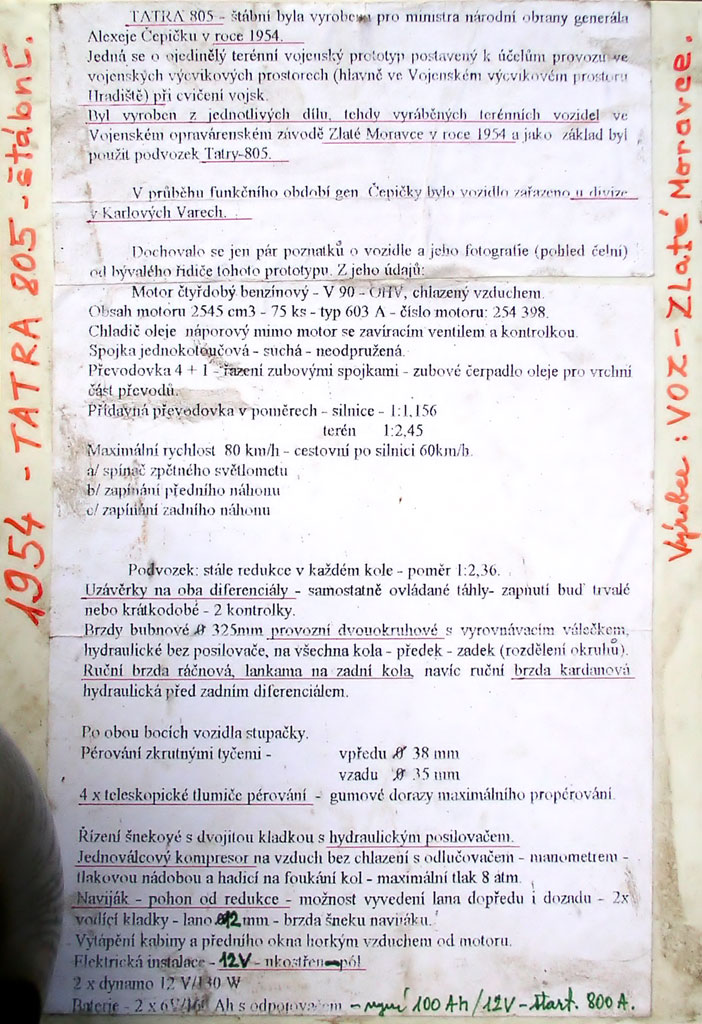 1954 - TATRA 805 - štábní.
TATRA 805 - štábní byla vyrobena pro ministra národní obrany generála
Alexeje Čepičku v roce 1954.
Jedná se o ojedinělý terénní vojenský prototyp postavený k účelům provozu ve
vojenských výcvikových prostorech (hlavně ve Vojenském výcvikovém prostoru
Hradiště) při cvičení vojsk.
Byl vyroben z jednotlivých dílu, tehdy vyráběných terénních vozidel ve
Vojenském opravárenském závodě Zlaté Moravce v roce 1954 a jako základ byl
použit podvozek Tatry-805.
V průběhu funkčního období gen Čepičky bylo vozidlo zařazeno u divize
v Karlových Varech.
Dochovalo se jen pár poznatků o vozidle a jeho fotografie (pohled čelní)
od bývalého řidiče tohoto prototypu. Z jeho údajů:
Motor čtyřdobý benzínový - V 90 - OHV, chlazený vzduchem.
Obsah motoru 2545 cm3 - 75 ks - typ 603 A - číslo motoru: 254 398.
Chladič oleje náporový mimo motor se zavíracím ventilem a kontrolkou.
Spojka jednokotoučová - suchá - neodpružená.
Převodovka 4 + 1 - řazení zubovými spojkami - zubové čerpadlo oleje pro vrchní
část převodů.
Přídavná převodovka v poměrech - silnice - 1:1,156
terén 1:2,45
Maximální rychlost 80 km/h - cestovní po silnici 60km/h.
a/ spínač zpětného světlometu
b/ zapínání předního náhonu
c/ zapínání zadního náhonu
Podvozek: stále redukce v každém kole - poměr 1:2,36.
Uzávěrky na oba diferenciály - samostatně ovládané táhly- zapnutí buď trvalé
nebo krátkodobé - 2 kontrolky.
Brzdy bubnové ø 325mm provozní dvouokruhové s vyrovnávacím válečkem,
hydraulické bez posilovače, na všechna kola - předek - zadek (rozdělení okruhů).
Ruční brzda ráčnová, lankama na zadní kola, navíc ruční brzda kardanová
hydraulická před zadním diferenciálem.
Po obou bocích vozidla stupačky.
Pérování zkrutnými tyčemi - vpředu ø 38 mm
vzadu ø 35 mm
4 x teleskopické tlumiče pérování - gumové dorazy maximálního propérování.
Řízení šnekové s dvojitou kladkou s hydraulickým posilovačem.
Jednoválcový kompresor na vzduch bez chlazení s odlučovačem - manometrem -
tlakovou nádobou a hadicí na foukání kol - maximální tlak 8 atm.
Naviják - pohon od redukce - možnost vyvedení lana dopředu i dozadu - 2x
vodící kladky - lano ø12 mm - brzda šneku navijáku.
Vytápění kabiny a předního okna horkým vzduchem od motoru.
Elektrická instalace - 12V - ukostřen - pól
2 x dynamo 12 V/130 W
Baterie - 2 x 6V/160 Ah s odpojovačem - nyní 100 Ah/12V - start. 800 A.
Výrobce: VOZ - Zlaté Moravce.